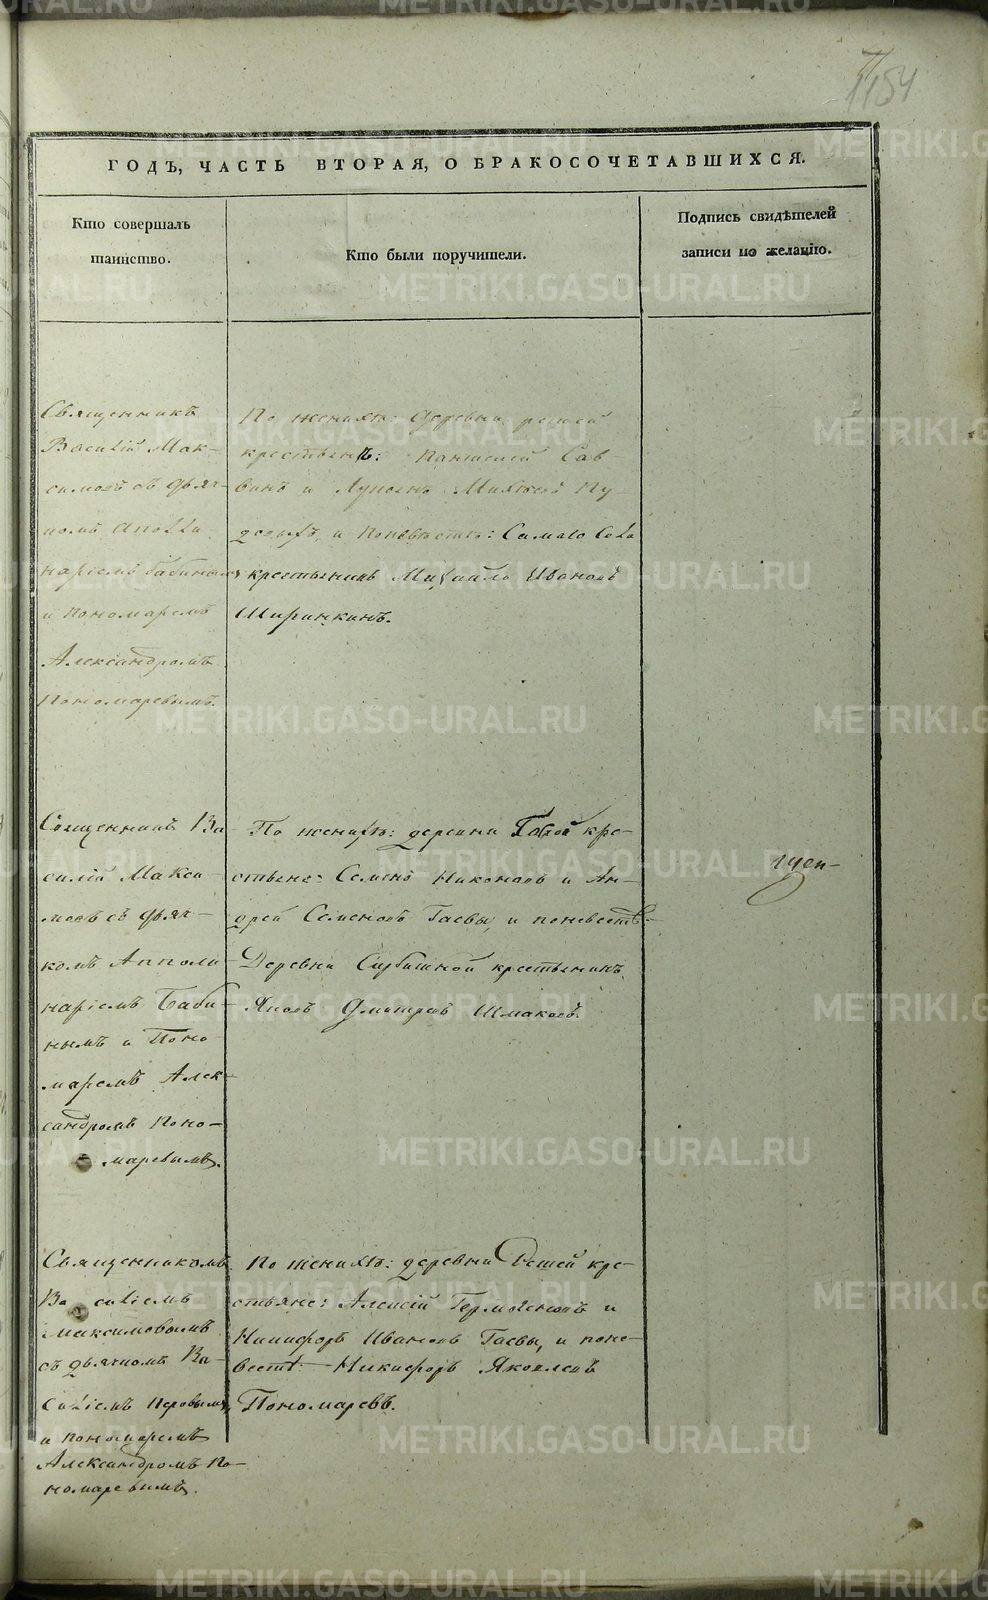 1154
ГОДЪ, ЧАСТЬ ВТОРАЯ, О БРАКОСОЧЕТАВШИХСЯ.
Кто совершалъ
таинство.
Кто были поручители.
Подпись свидѣтелей
записи по желанію.
Священникъ
Василій Мак-
симовъ съ дьяч-
комъ Аполли
наріемъ Бабинымъ
и пономаремъ
Александромъ
Пономаревымъ.
По женихѣ: деревни
крестьянѣ: Пантелей Сав-
винъ и Лупоянъ
и поневѣстѣ: Самаго села
крестьянинъ Михайло Ивановъ
Ширинкинъ.
Священникъ Ва
силій Макси
мовъ съ дьяч-
комъ Апполи
наріемъ Баби-
нымъ и Поно
маремъ Алек-
сандромъ Поно-
маревымъ.
По женихѣ: деревни Гаевой кре-
стьяне: Семенъ Никоновъ и Ан-
дрей Семеновъ Гаевы, и поневестѣ-
Деревни Сарбишной крестьянинъ
Яковъ Дмитревъ Шмаковъ.
Священникомъ
Василіемъ
Максимовымъ
съ дьячкомъ Ва-
силіемъ Перовымъ,
и пономаремъ
Александромъ По-
номаревымъ.
По женихѣ: деревни Решей кре-
стьяне: Алексій Гермогеновъ и
Никифоръ Ивановъ Гаевы, и поне-
вестѣ- Никифоръ Яковлевъ
Пономаревъ.
METRIKI.GASO-URAL.RU